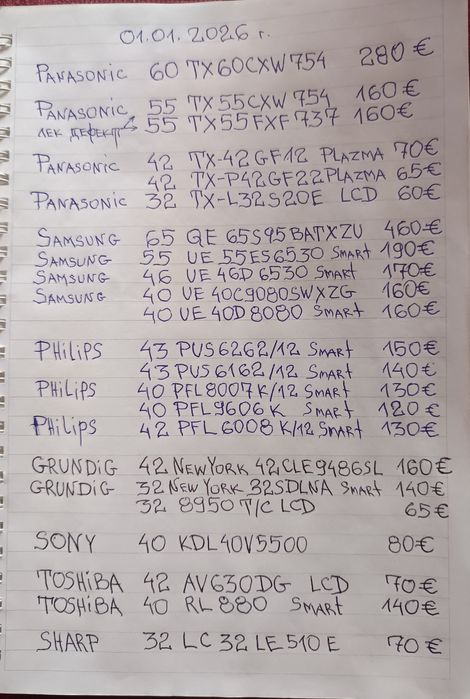 01.01.2026 г.
PANASONIC 60 TX60CXW754 280€
PANASONIC 55 TX55CXW754 160€
ЛЕК ДЕФЕКТ 55 TX55FXF737 160€
PANASONIC 42 TX-42GF12 PLAZMA 70€
42 TX-P42GF22PLAZMA 65€
PANASONIC 32 TX-L32S20E LCD 60€
SAMSUNG 65 QE 65S95BATXZU 460€
SAMSUNG 55 UE 55ES6530 SMART 190€
SAMSUNG 46 UE 46D6530 SMART 170€
SAMSUNG 40 UE 40C9080SWXZG 160€
40 UE 40D8080 SMART 160€
PHILIPS 43 PUS6262/12 SMART 150€
43 PUS6162/12 SMART 140€
PHILIPS 40 PFL8007K/12 SMART 130€
40 PFL9606K SMART 120€
PHILIPS 42 PFL6008K/12 SMART 130€
GRUNDIG 42 NEWYORK 42CLE9486SL 160€
GRUNDIG 32 NEW YORK 32SDLNA SMART 140€
32 8950 T/C LCD 65€
SONY 40 KDL40V5500 80€
TOSHIBA 42 AV630DG LCD 70€
TOSHIBA 40 RL880 SMART 140€
SHARP 32 LC32LE510E 70€